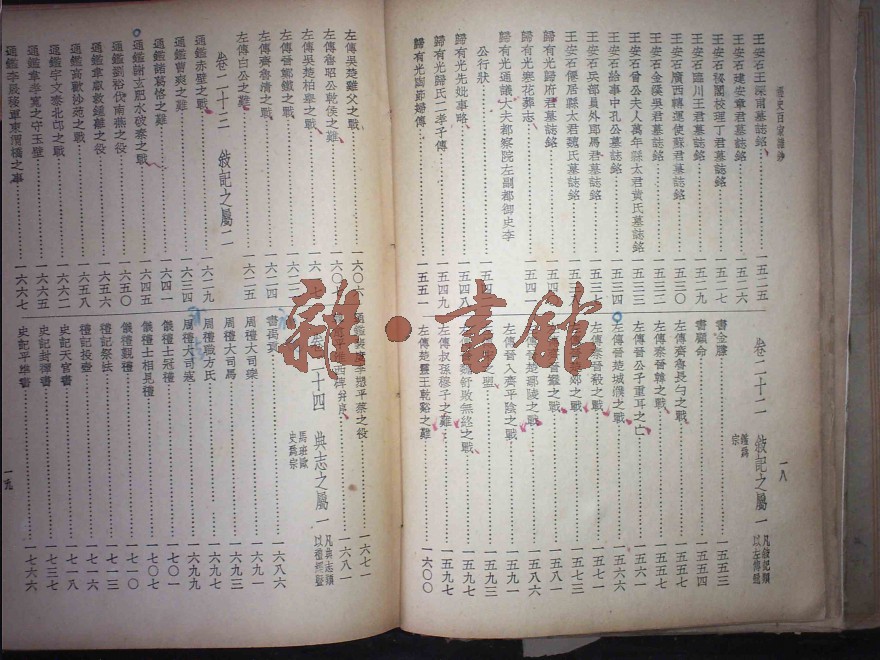 經史百家雜鈔
王安石王深甫墓誌銘 一五二五
王安石建安章君墓誌銘 一五二六
王安石秘閣校理丁君墓誌銘 一五二七
王安石臨川王君墓誌銘 一五二九
王安石廣西轉運使蘇君墓誌銘 一五三〇
王安石金溪吳君墓誌銘
王安石曾公夫人萬年縣太君黃氏墓誌銘
王安石給事中孔公墓誌銘 一五三四
王安石兵部員外郎馬君墓誌銘 一五三七
王安石僊居縣太君魏氏墓誌銘
歸有光歸府君墓誌銘
歸有光寒花葬志 一五四
歸有光通議大夫都察院左副都御史李
公行狀 一五四
歸有光先妣事略 一五四八
歸有光歸氏二孝子傳 一五四九
歸有光陶節婦傳 一五五一
卷二十二 敘記之屬一 凡敘記類以左傳鑑為宗
書金縢 一五五三
書顧命 一五五四
左傳齊魯長勺之戰 一五五七
左傳秦晉韓之戰
左傳晉公子重耳之亡
左傳晉楚城濮之戰 一五六六
左傳秦晉殽之戰 一五七一
之戰 一五七三
之戰
左傳晉楚鄢陵之戰 一五八六
左傳晉入齊平陰之戰 一五九一
之盟 一五九三
敗無終之戰 一五九七
左傳叔孫穆子之難 一五九七
左傳楚靈王乾谿之難 一六〇〇
一八
左傳吳楚雞父之戰 一六〇六
左傳魯昭公乾侯之難 一六〇
左傳吳楚柏舉之戰 一六一七
左傳晉鄭鐵之戰
左傳齊魯清之戰
左傳白公之難 一六二五
卷二十三 敘記之屬二
通鑑赤壁之戰 一六二九
通鑑曹爽之難 一六三四
通鑑諸葛恪之難 一六四一
通鑑謝玄肥水破秦之戰 一六四五
通鑑劉裕伐南燕之役 一六五〇
通鑑韋叡救鍾離之役 一六五六
通鑑高歡沙苑之戰 一六五八
通鑑宇文泰北邙之戰 一六六二
通鑑韋孝寬之守玉璧 一六六五
通鑑李晟移軍東渭橋之事 一六六七
通鑑裴度李愬平蔡之役 一六七一
一六八一
卷二十四 典志之屬一 凡典志類以禮經暨馬班歐史為宗
書禹貢 一六八六
周禮大司樂 一六九一
周禮大司馬 一六九三
周禮職方氏 一六九七
周禮大司寇 一六九九
儀禮士冠禮 一七〇一
儀禮士相見禮 一七〇七
儀禮覲禮 一七一〇
禮記祭法 一七一三
禮記投壺 一七一五
史記天官書 一七一八
史記封禪書 一七三七
史記平準書 一七六六
一九
雜·書館